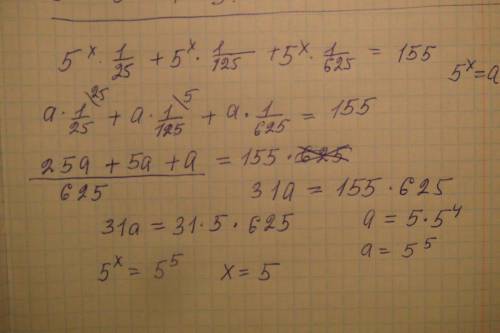 5^x · 1/25 + 5^x · 1/125 + 5^x · 1/625 = 155
5^x = a
a · 1/25 \25 + a · 1/125 \5 + a · 1/625 = 155
(25a + 5a + a)/625 = 155 ·
31a = 155 · 625
31a = 31 · 5 · 625
a = 5 · 5^4
a = 5^5
5^x = 5^5 x = 5